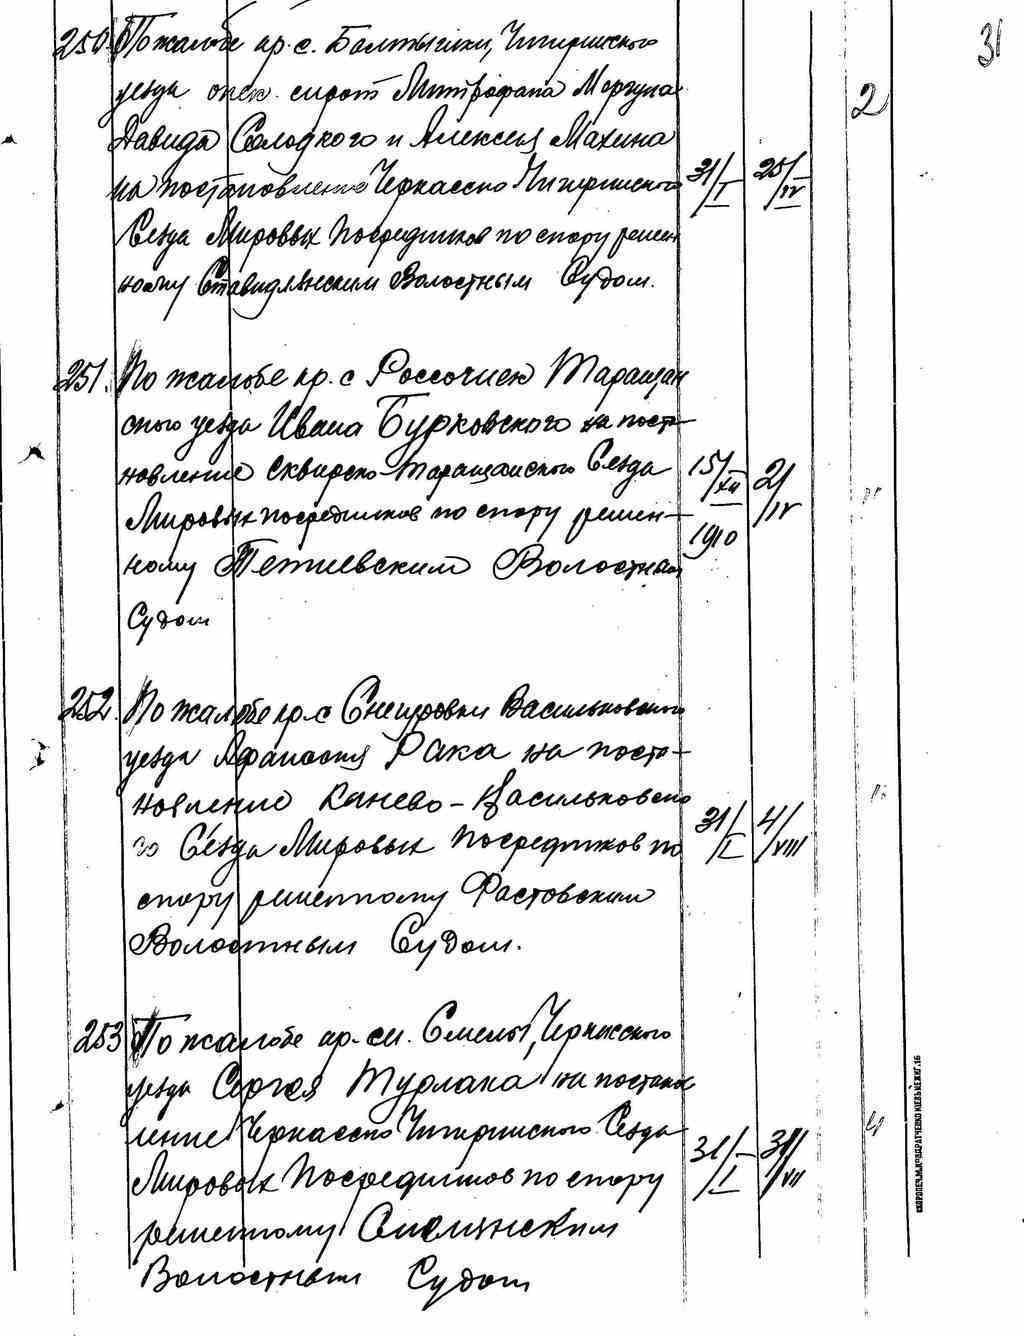 31
2
250. По жалобе кр. с. Болтышки, Чигиринского
уезда опек. сирот Митрофана Моргуна
Давида Солодкого и Алексея Махина
на постановление Черкасско Чигиринского
Съезда Мировых Посредников по спору решен
ному Ставидлянским Волостным Судом.
31/I 25/IV
251. По жалобе кр. с Россошек Таращан
ского уезда Ивана Бурковского на поста-
новление Сквирско-Таращанского Съезда
Мировых посредников по спору решен-
ному Тетиевским Волостным
Судом
15/XII 1910 2/IV
252. По жалобе кр. с Снетровки Васильковского
уезда Афанасия Рака на поста-
новление Канево-Васильковско
го Съезда Мировых Посредников по
спору решенному Фастовским
Волостным Судом.
31/I 4/VIII
253 По жалобе кр. м. Смелы, Черкасского
уезда Сергея Турлака на постанов
ление Черкасско Чигиринского Съезда
Мировых Посредников по спору
решенному Смелянским
Волостным Судом
31/I 31/VII